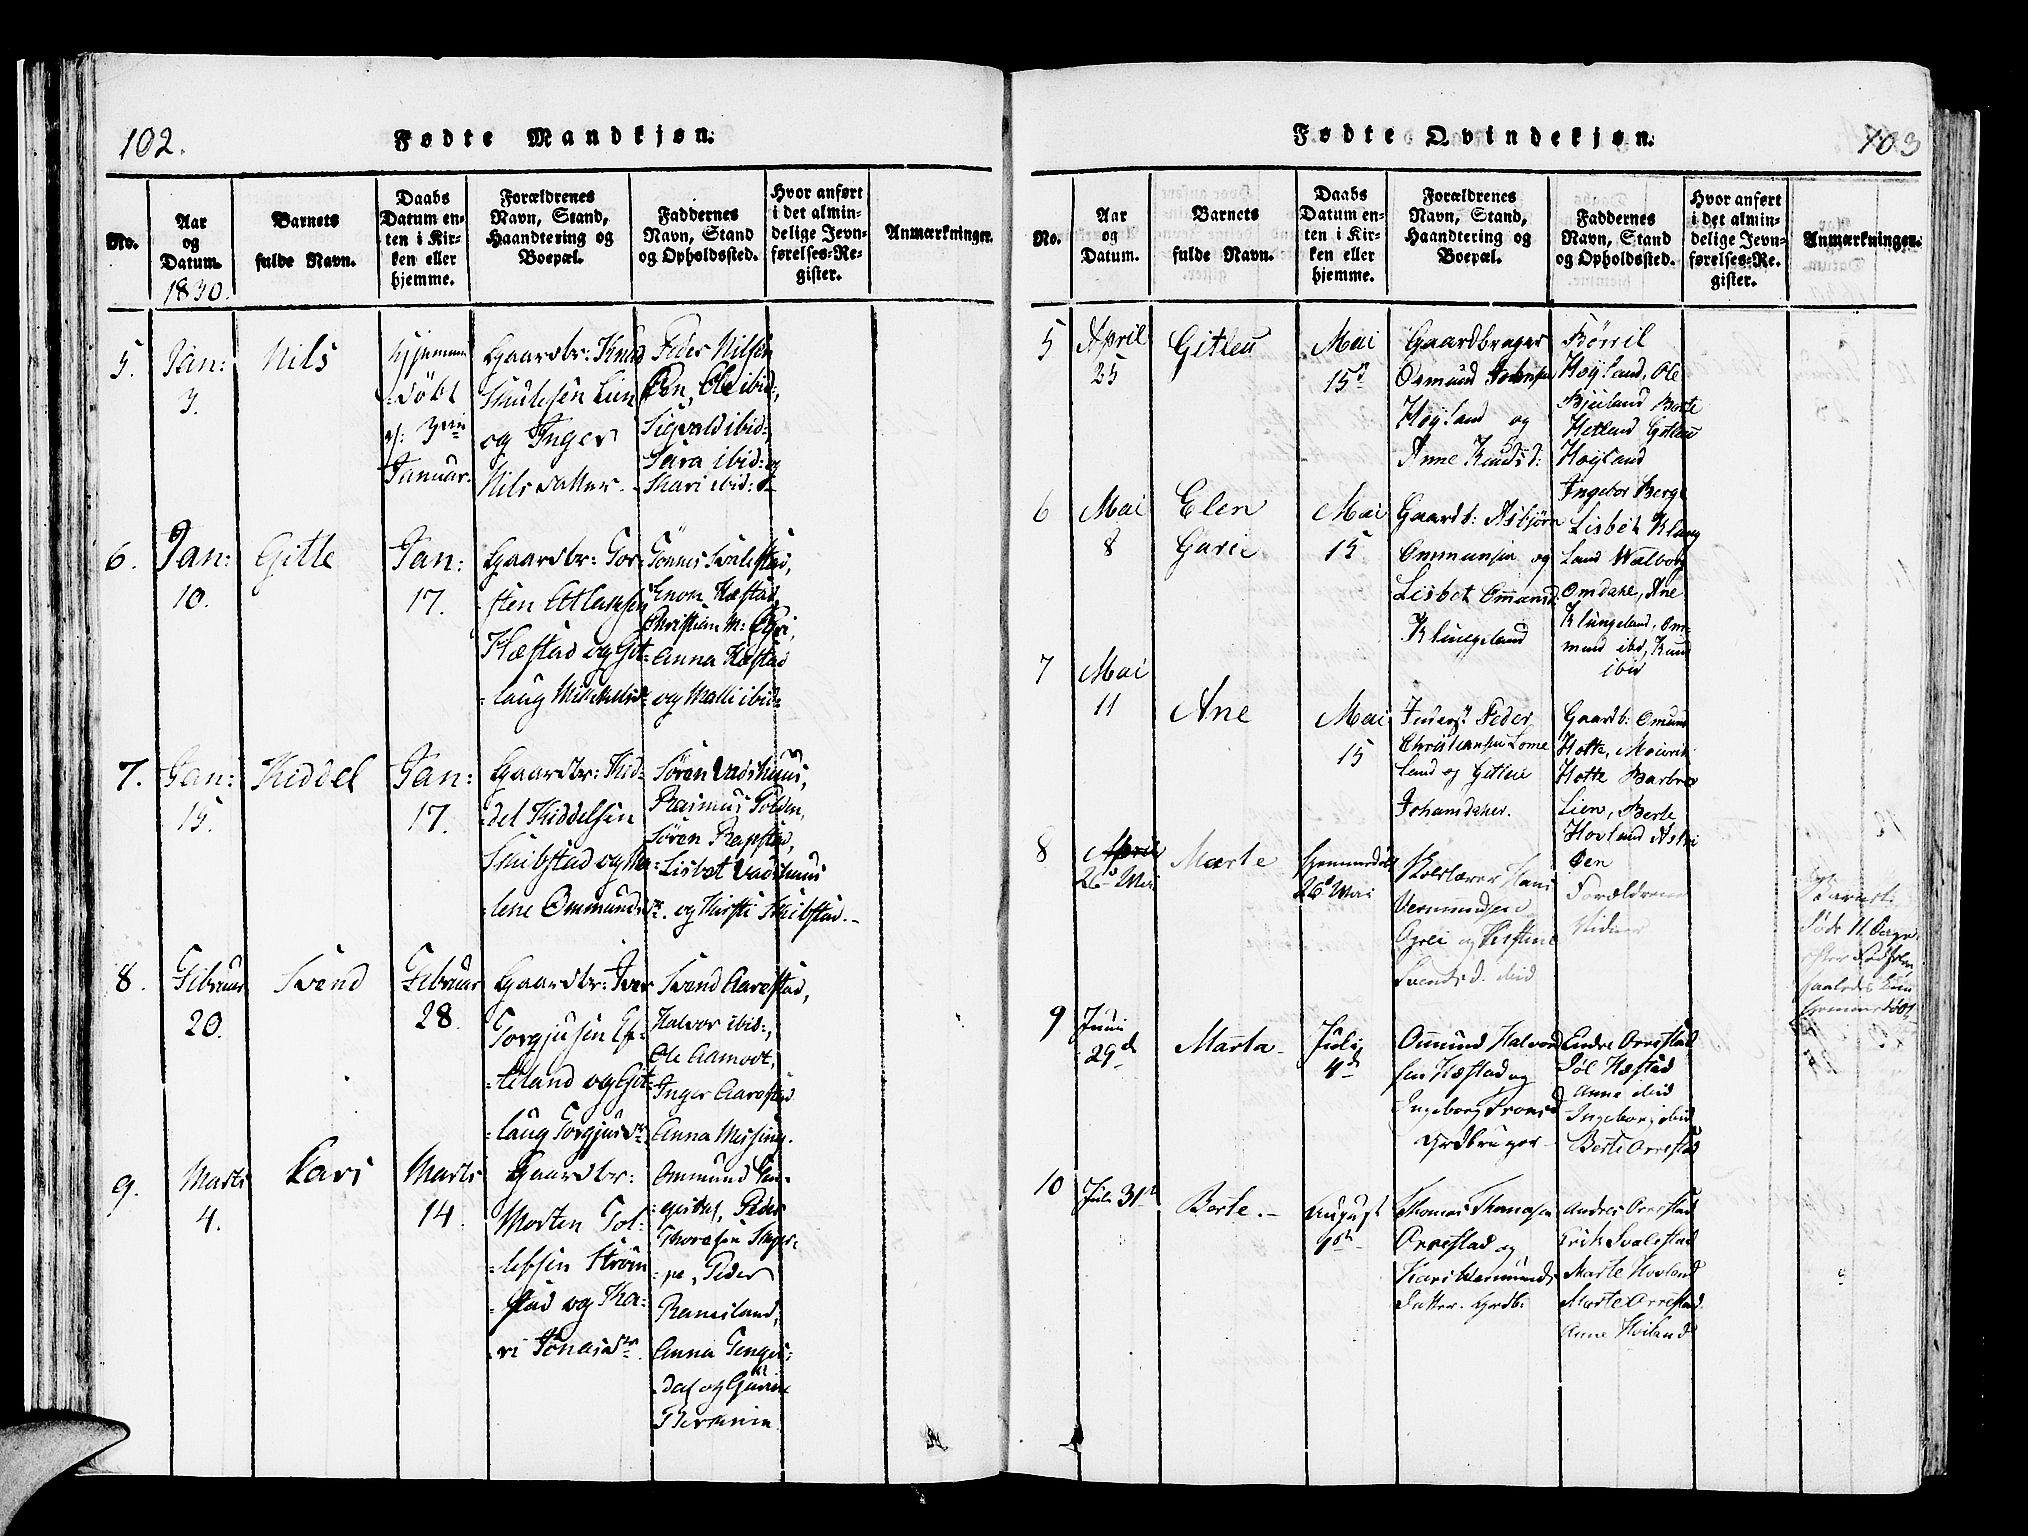 102.
Fødte Mandkjøn.
No.
Aar
og
Datum.
1830.
Barnets
fulde Navn.
Daabs
Datum en-
ten i Kir-
ken eller
hjemme.
Forældrenes
Navn, Stand,
Haandtering og
Boepæl.
Faddernes
Navn, Stand
og Opholdssted.
Hvor anført
i det almin-
delige Jevn-
førelses-Re-
gister.
Anmærkninger.
5.
Jan:
3.
Nils
hjemme
døbt
Januar.
Gaardbr: Knud
Skulesen Lien
og Inger
Nilsdatter.
Peder Nilsen
Øen, Ole ibid:,
Sigvald ibid:,
Sara ibid: og
Skari ibid:
6.
Jan:
10.
Gitle
Jan:
17.
Gaardbr: Tor-
sten Atlaksen
Hæstad og Git-
laug
Tønnes Svalestad,
Enom Hæstad,
Christian M: Egri,
Anna Hæstad
og Malli ibid:
7.
Jan:
15.
Kiddel
Jan:
17.
Gaardbr: Kid-
del Kiddelsen
Skibstad og He-
lene Ommundsdr.
Søren Vadshuus,
Rasmus
Søren Rapstad,
Lisbet Vadshuus
og Kirsti Skibstad.
8.
Februar
20.
Svend
Februar
28.
Gaardbr: Iver
Torgjusen Ef-
teland og Git-
laug Torgjusdr.
Svend Aarestad,
Halvor ibid:,
Ole Aamodt,
Inger Aarestad
Anna Missing.
9.
Marts
4.
Kari
Marts
14.
Gaardbr:
Morten Tol-
lefsen Strøm-
stad og Ka-
ri Jonasdr.
Ommund Gen-
gesdal, Peder
Thoresen Skjer-
pe, Peder
Ramsland,
Anna Genges-
dal og Gurine
103
Fødte Qvindekjøn.
No.
Aar
og
Datum.
Barnets
fulde Navn.
Daabs
Datum en-
ten i Kir-
ken eller
hjemme.
Forældrenes
Navn, Stand,
Haandtering og
Boepæl.
Faddernes
Navn, Stand
og Opholdssted.
Hvor anført
i det almin-
delige Jevn-
førelses-Re-
gister.
Anmærkninger.
5
April
25
Gitleu
Mai
15d
Gaardbruger
Osmund Johnsen
Høyland og
Anne Knudsd:
Børril
Høyland, Ole
Bjeiland Berte
Hetland Gitleu
Høyland
Ingebor Berge
6
Mai
8
Elen
Garie
Mai
15
Gaardb: Asbjørn
Ommunsen og
Lisbet Omansd
Klungeland
Lisbet Klung
land Walborg
Omdahl, Ane
Klungeland, Om-
mund ibd, Knud
ibid
7
Mai
11
Ane
Mai
15
Inderst Peder
Christiansen Lome
land og Gitleu
Johansdatter.
Gaardb: Omund
Hotte,
Hotte Barbro
Lien, Berte
Hovland Astri
Øen
8
April
26d Mai
Marte
hjemmedøbt
26d Mai
Skolelærer Hans
Vermundsen
Egrei og Kirstine
Svendsd. ibid
Forældrene
Vidner
Barnet
døde 11 Dage
efter Fødselen,
saaledes kun
hjemmedøbt
9
Juni
29d
Marta
Juli
4d
Ommund Halvord
sen Hæstad og
Ingeborg Tronsd
Grdbruger
Endre Orrestad
Joel Hæstad
Anne ibid
Ingeborg ibid
Berte Orrestad
10
Juli 31te
Berte
August
Thomas Thomasen
Orrestad og
Kari Wermunds
datter. Grdb:
Andres Orrestad
Erik Svalestad
Marte Hovland
Marte Orrestad
Anne Høiland